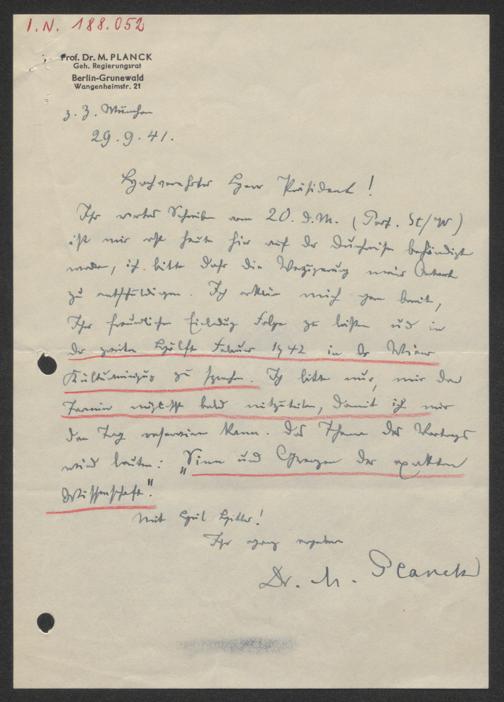 I.N. 188.052
Prof. Dr. M. PLANCK
Geh. Regierungsrat
Berlin-Grunewald
Wangenheimstr. 21
z. Z. München
29.9.41.
Hochverehrter Herr Präsident!
Ihr wertes Schreiben vom 20. d. M. (Pers. St/W)
ist mir erst heute hier auf der Durchreise behändigt
worden, ich bitte daher die Verzögerung meiner Antwort
zu entschuldigen. Ich erkläre mich gern bereit,
Ihrer freundlichen Einladung Folge zu leisten und in
der zweiten Hälfte Februar 1942 in der Wiener
Kulturvereinigung zu sprechen. Ich bitte nur, mir den
Termin möglichst bald mitzuteilen, damit ich mir
den Tag reservieren kann. Das Thema des Vortrags
wird lauten: „Sinn und Grenzen der exakten
Wissenschaft".
Mit Heil Hitler!
Ihr ganz ergebener
Dr. M. Planck